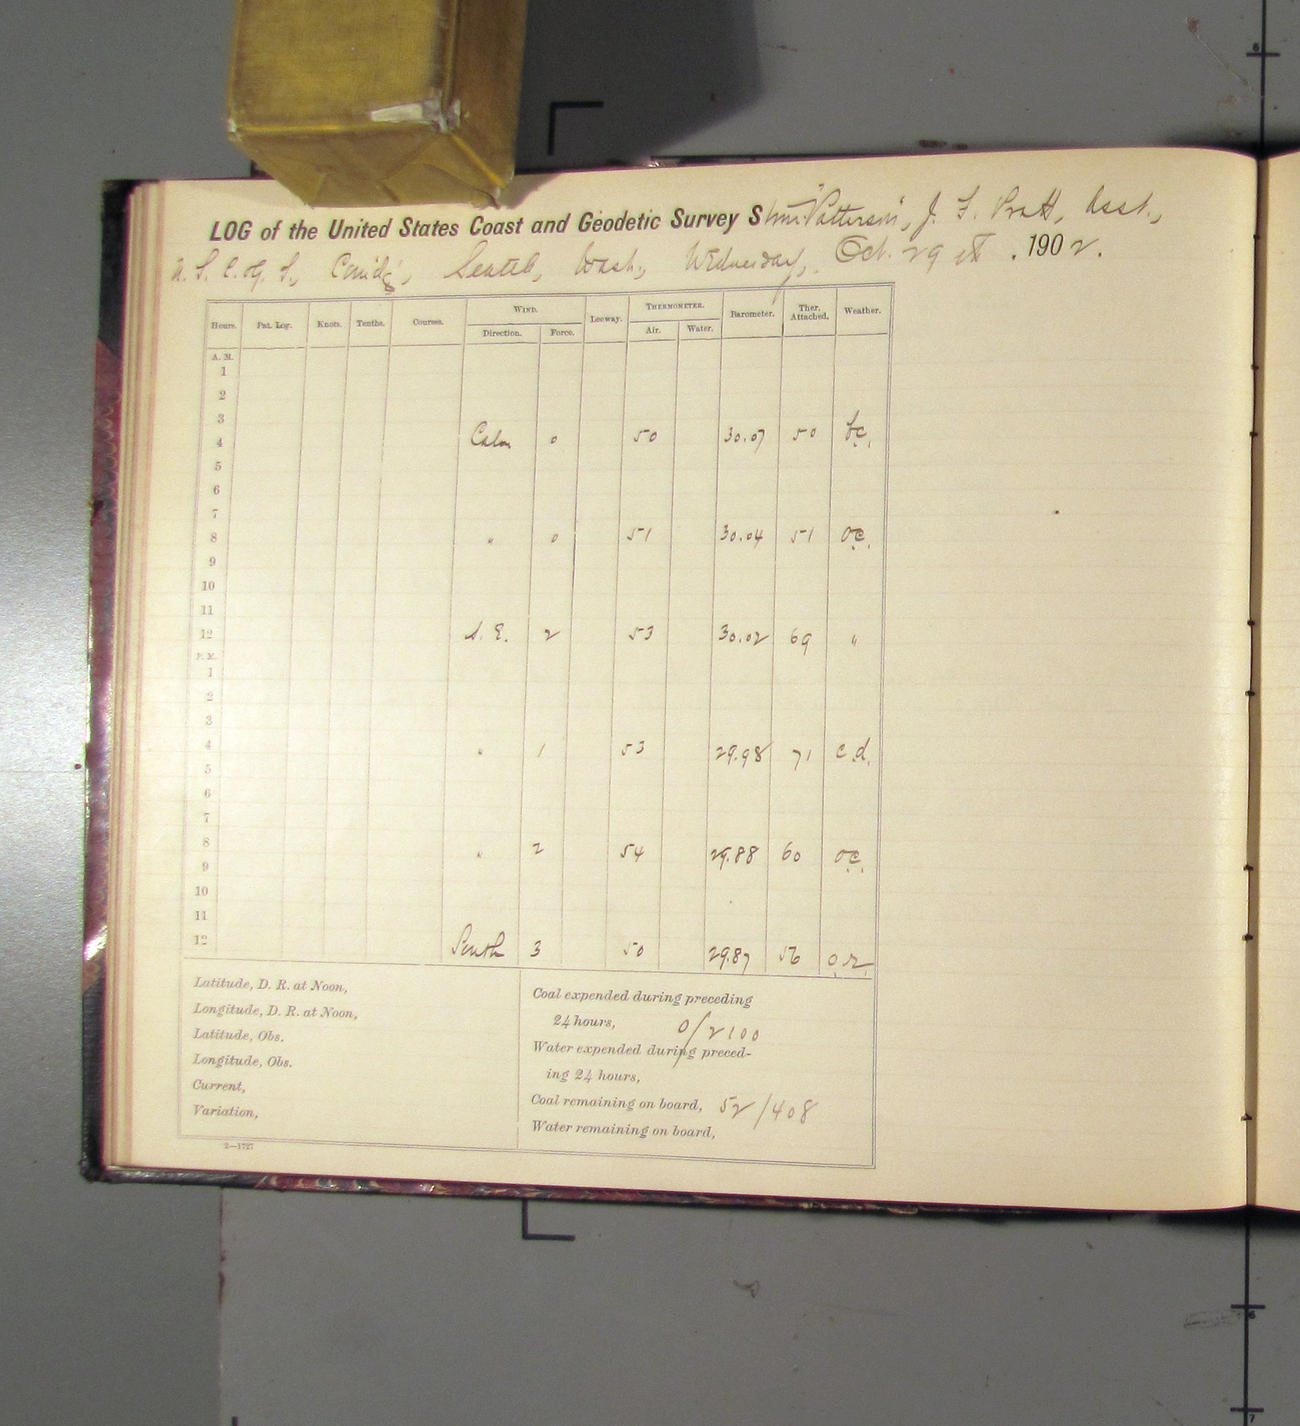 LOG of the United States Coast and Geodetic Survey Stmr "Patterson", J. F. Pratt, Asst.,
U. S. C. & G. S., Comd'g, Seattle, Wash., Wednesday, Oct. 29th .1902.
Hours. Pat. Log. Knots. Tenths. Courses. WIND. Leeway. THERMOMETER. Barometer. Ther. Attached. Weather.
Direction. Force. Air. Water.
A. M.
1
2
3
4 Calm 0 50 30.07 50 b.c.
5
6
7
8 " 0 51 30.04 51 o.c.
9
10
11
12 S. E. 2 53 30.02 69 "
P. M.
1
2
3
4 " 1 53 29.98 71 c.d.
5
6
7
8 " 2 54 29.88 60 o.c.
9
10
11
12 South 3 50 29.87 56 o.r.
Latitude, D. R. at Noon,
Longitude, D. R. at Noon,
Latitude, Obs.
Longitude, Obs.
Current,
Variation,
Coal expended during preceding
24 hours, 0/2100
Water expended during preced-
ing 24 hours,
Coal remaining on board, 52/408
Water remaining on board,
2—1727
6
6
7